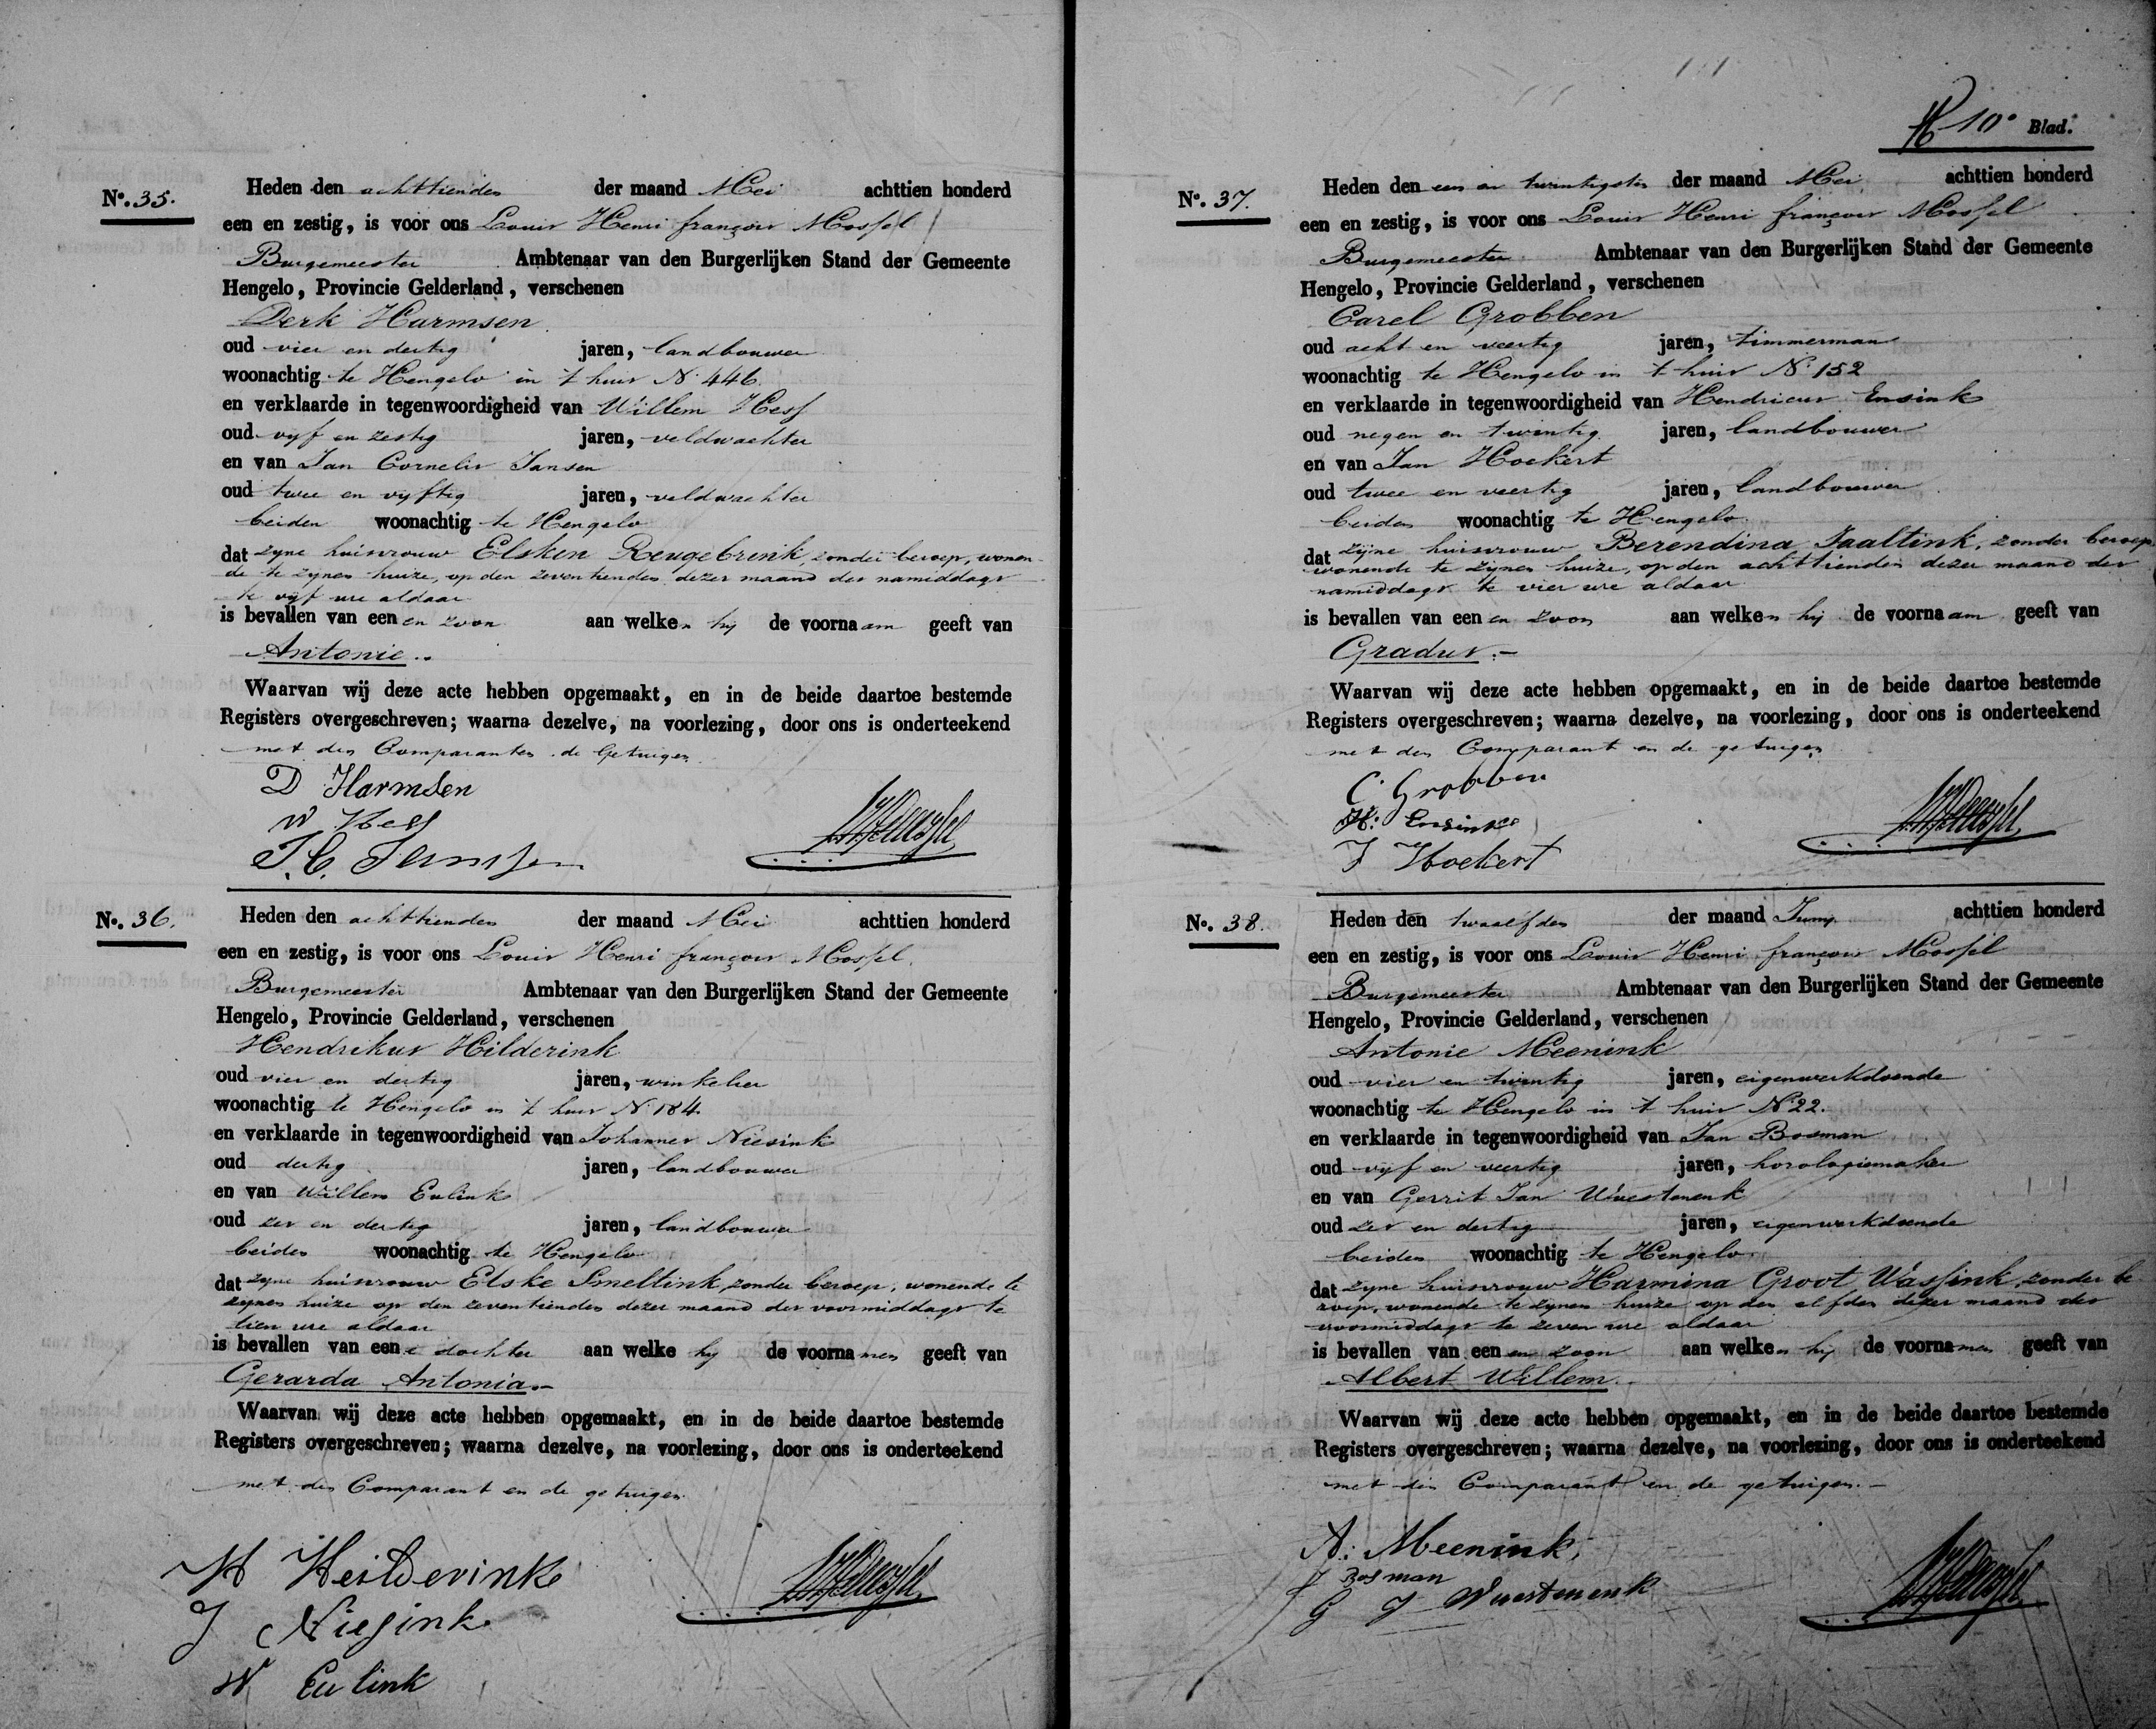 No. 35.
Heden den achttienden der maand Mei achttien honderd
een en zestig, is voor ons Louis Henri françois Mossel
Burgemeester Ambtenaar van den Burgerlijken Stand der Gemeente
Hengelo, Provincie Gelderland, verschenen
Derk Harmsen
oud vier en dertig jaren, landbouwer
woonachtig te Hengelo in 't huis No 446.
en verklaarde in tegenwoordigheid van Willem Hess
oud vyf en zestig jaren, veldwachter
en van Jan Cornelis Jansen
oud twee en vyftig jaren, veldwachter
beiden woonachtig te Hengelo
dat zyne huisvrouw Elsken Reugebrink, zonder beroep, wonen-
de te zynen huize, op den zeventienden dezer maand des namiddags
te vyf ure aldaar
is bevallen van een en zoon aan welken hy de voornaam geeft van
Antonie..
Waarvan wij deze acte hebben opgemaakt, en in de beide daartoe bestemde
Registers overgeschreven; waarna dezelve, na voorlezing, door ons is onderteekend
met den Comparanten de Getuigen
D Harmsen
W Hess
J. C. Jansen
No. 36.
Heden den achttienden der maand Mei achttien honderd
een en zestig, is voor ons Louis Henri françois Mossel.
Burgemeester Ambtenaar van den Burgerlijken Stand der Gemeente
Hengelo, Provincie Gelderland, verschenen
Hendrikus Hilderink
oud vier en dertig jaren, winkelier
woonachtig te Hengelo in 't huis No 184.
en verklaarde in tegenwoordigheid van Johannes Niesink
oud dertig jaren, landbouwer
en van Willem Eulink
oud zes en dertig jaren, landbouwer
beiden woonachtig te Hengelo
dat zyne huisvrouw Elske Smeltink, zonder beroep, wonende te
zynen huize op den zeventienden dezer maand des voormiddags te
tien ure aldaar
is bevallen van eene dochter aan welke hy de voornamen geeft van
Gerarda Antonia.-
Waarvan wij deze acte hebben opgemaakt, en in de beide daartoe bestemde
Registers overgeschreven; waarna dezelve, na voorlezing, door ons is onderteekend
met den Comparant en de getuigen
H Heilderink
J Niesink
W Eulink
10e Blad.
No. 37.
Heden den een en twintigsten der maand Mei achttien honderd
een en zestig, is voor ons Louis Henri françois Mossel
Burgemeester Ambtenaar van den Burgerlijken Stand der Gemeente
Hengelo, Provincie Gelderland, verschenen
Carel Grobben
oud acht en veertig jaren, timmerman
woonachtig te Hengelo in 't huis No 152
en verklaarde in tegenwoordigheid van Hendricus Ensink
oud negen en twintig jaren, landbouwer
en van Jan Hoekert
oud twee en veertig jaren, landbouwer
beiden woonachtig te Hengelo
dat zijne huisvrouw Berendina Jaaltink, zonder beroep
wonende te zijnen huize, op den achttienden dezer maand des
namiddags te vier ure aldaar
is bevallen van een en zoon aan welken hij de voornaam geeft van
Gradus.-
Waarvan wij deze acte hebben opgemaakt, en in de beide daartoe bestemde
Registers overgeschreven; waarna dezelve, na voorlezing, door ons is onderteekend
met den Comparant en de getuigen
C. Grobben
H: Ensink
J Hoekert
No. 38.
Heden den twaalfden der maand Juny achttien honderd
een en zestig, is voor ons Louis Henri françois Mossel
Burgemeester Ambtenaar van den Burgerlijken Stand der Gemeente
Hengelo, Provincie Gelderland, verschenen
Antonie Meenink
oud vier en twintig jaren, eigenwerkdoende
woonachtig te Hengelo in 't huis No 22.
en verklaarde in tegenwoordigheid van Jan Bosman
oud vyf en veertig jaren, horologiemaker
en van Gerrit Jan Wuestenenk
oud zes en dertig jaren, eigenwerkdoende
beiden woonachtig te Hengelo
dat zyne huisvrouw Harmina Groot Wassink, zonder be
roep, wonende te zynen huize op den elfden dezer maand des
voormiddags te zeven ure aldaar
is bevallen van een en zoon aan welken hy de voornamen geeft van
Albert Willem.
Waarvan wij deze acte hebben opgemaakt, en in de beide daartoe bestemde
Registers overgeschreven; waarna dezelve, na voorlezing, door ons is onderteekend
met den Comparant en de getuigen.-
A: Meenink,
J Bosman
G J Wuestenenk